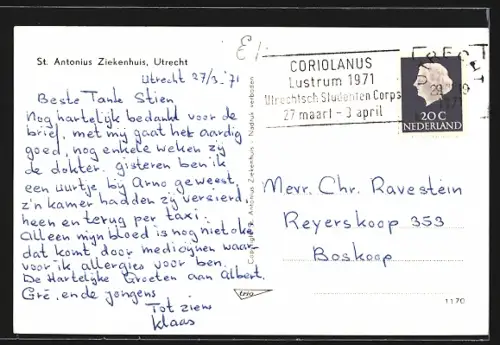 St. Antonius Ziekenhuis, Utrecht
Utrecht 27/3.'71
Beste Tante Stien
Nog hartelijk bedankt voor de
brief, met mij gaat het aardig
goed, nog enkele weken zij
de dokter. gisteren ben ik
een uurtje bij Arno geweest.
z'n kamer hadden zij versierd.
heen en terug per taxi.
Alleen mijn bloed is nog niet oke
dat komt door medicijnen waar-
voor ik allergies voor ben.
De Hartelijke Groeten aan Albert,
Gré, en de jongens
Tot ziens
Klaas
CORIOLANUS
Lustrum 1971
Utrechtsch Studenten Corps
27 maart - 3 april
UTRECHT
1971
20 C
NEDERLAND
Mevr. Chr. Ravestein
Reyerskoop 353
Boskoop
St. Antonius Ziekenhuis - Nadruk verboden
1170